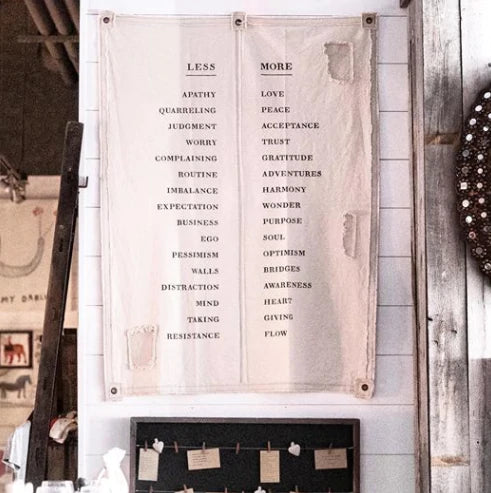 LESS MORE
APATHY LOVE
QUARRELING PEACE
JUDGMENT ACCEPTANCE
WORRY TRUST
COMPLAINING GRATITUDE
ROUTINE ADVENTURES
IMBALANCE HARMONY
EXPECTATION WONDER
BUSINESS PURPOSE
EGO SOUL
PESSIMISM OPTIMISM
WALLS BRIDGES
DISTRACTION AWARENESS
MIND HEART
TAKING GIVING
RESISTANCE FLOW
MY